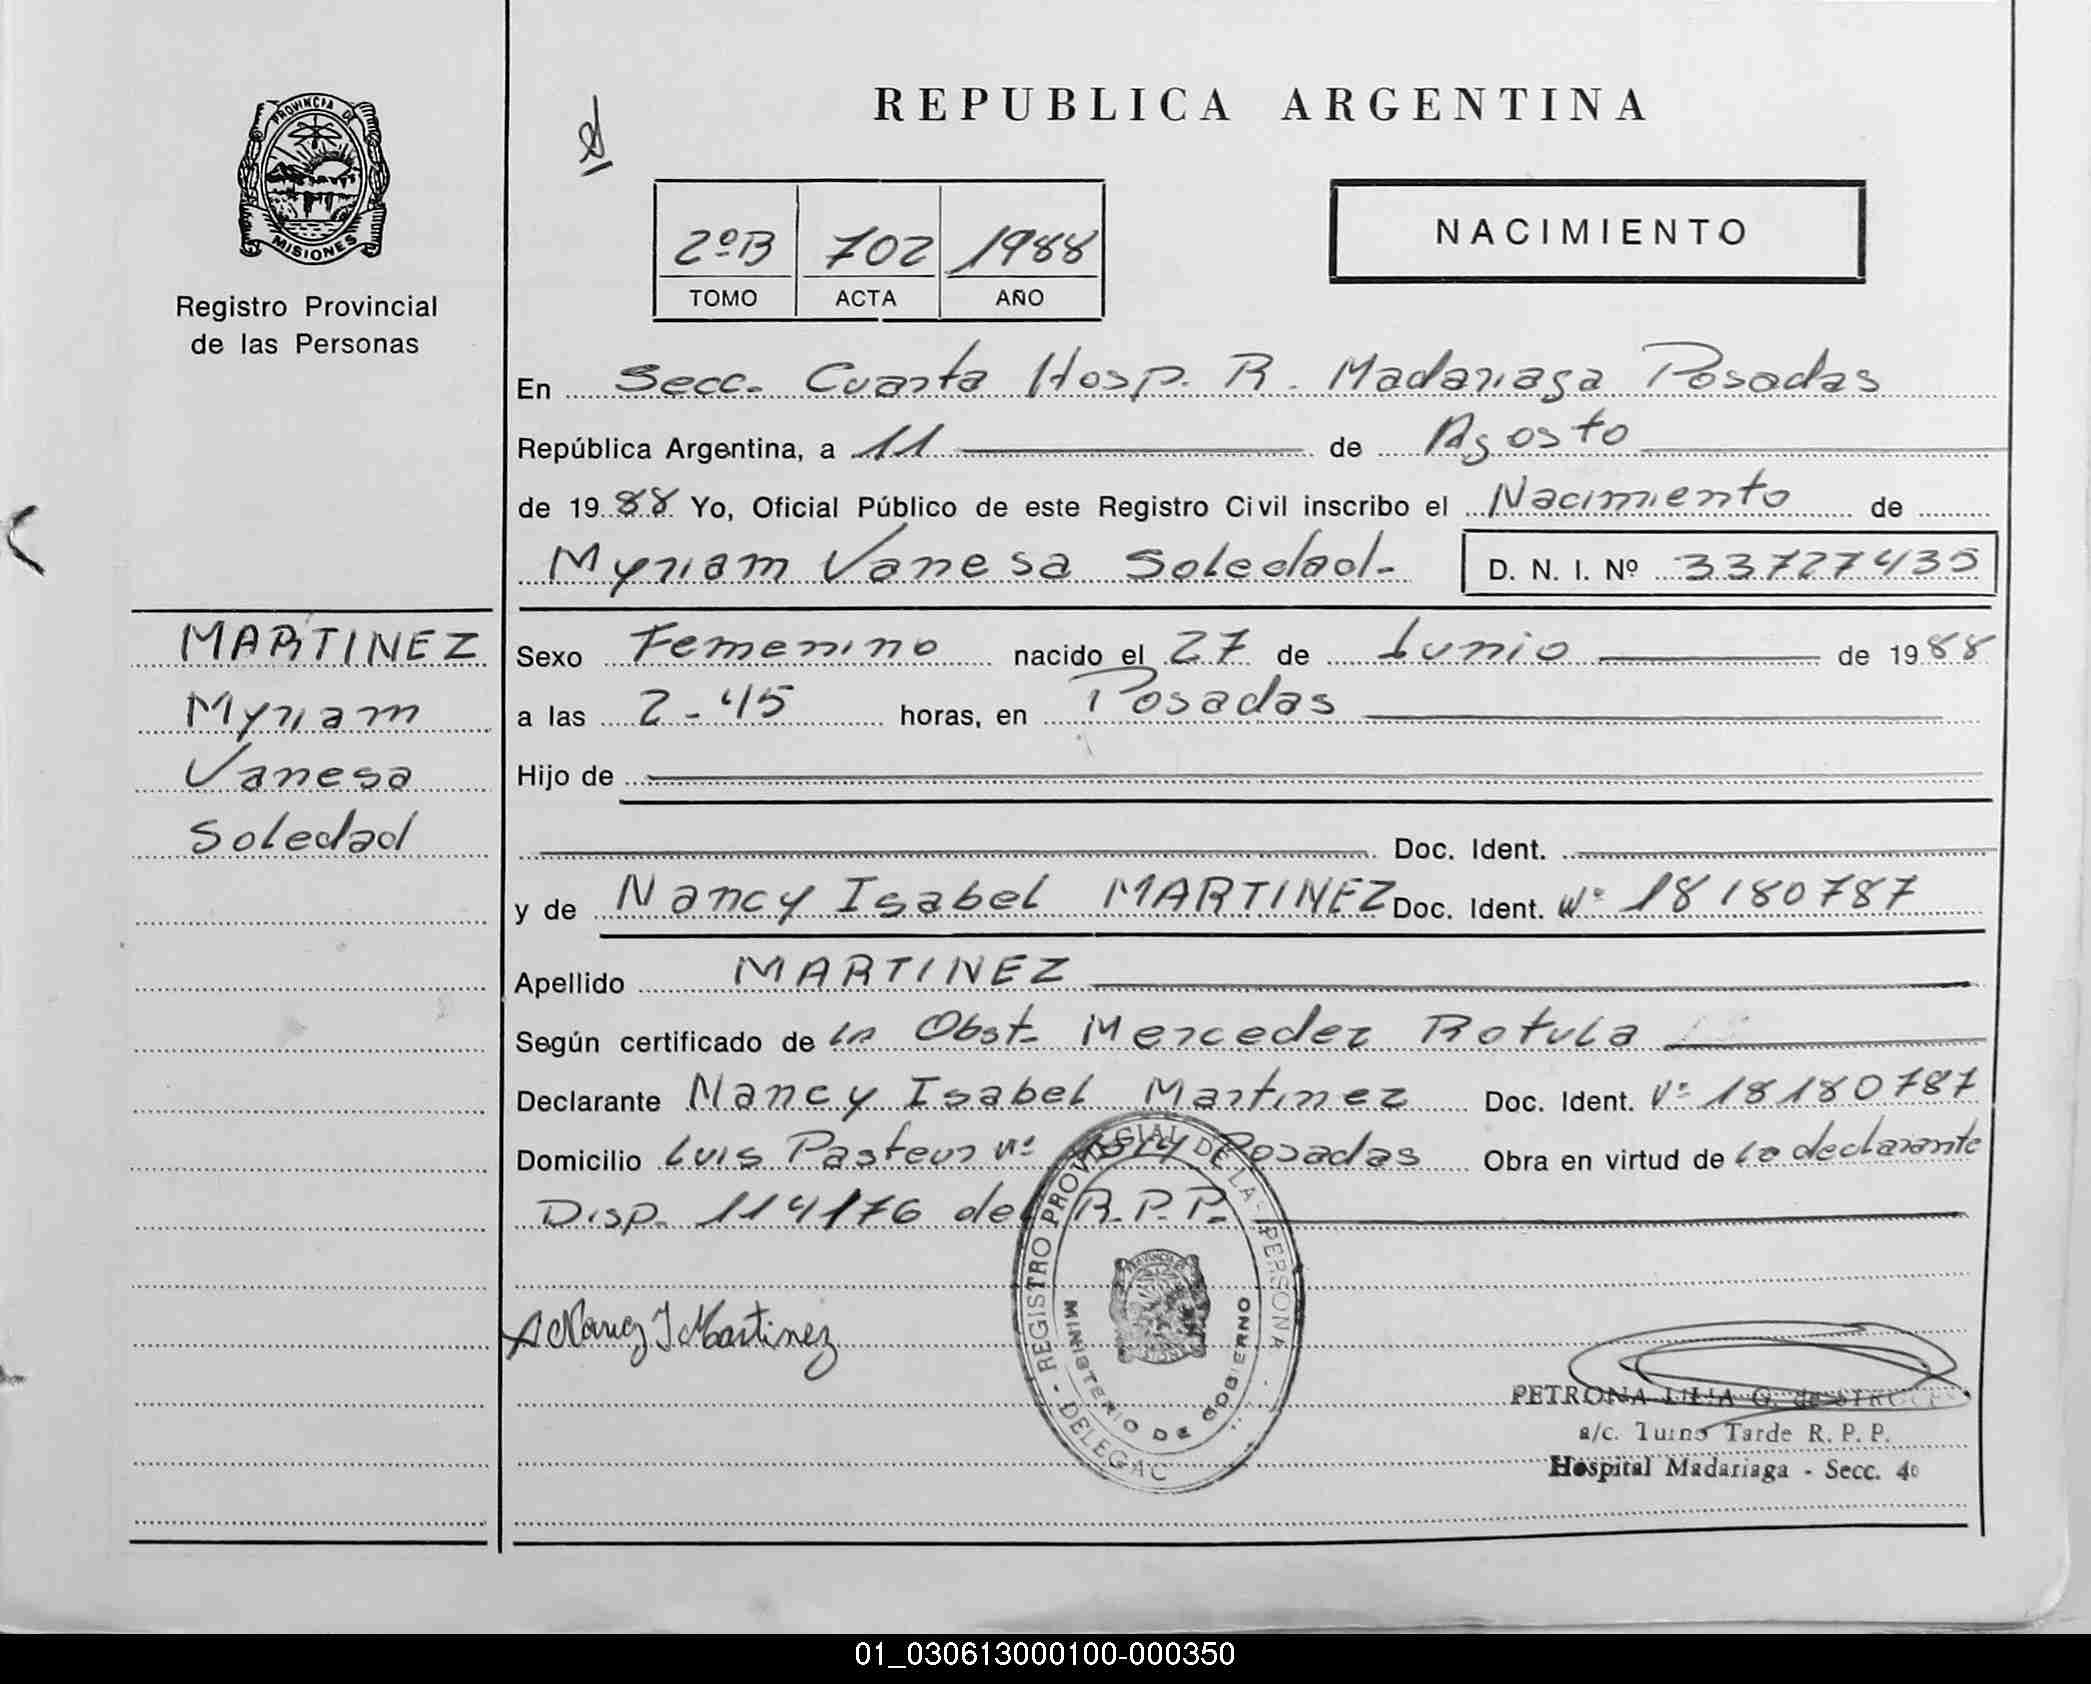 PROVINCIA DE
MISIONES
Registro Provincial
de las Personas
MARTINEZ
Myriam
Vanesa
Soledad
REPUBLICA ARGENTINA
2ºB 702 1988
TOMO ACTA AÑO
NACIMIENTO
En Secc. Cuarta Hosp. R. Madariaga Posadas
República Argentina, a 11 de Agosto
de 1988 Yo, Oficial Público de este Registro Civil inscribo el Nacimiento de
Myriam Vanesa Soledad- D. N. I. Nº 33727435
Sexo Femenino nacido el 27 de Junio de 1988
a las 2-45 horas, en Posadas
Hijo de
Doc. Ident.
y de Nancy Isabel MARTINEZ Doc. Ident. Nº 18180787
Apellido MARTINEZ
Según certificado de la Obst. Mercedez Rotula
Declarante Nancy Isabel Martinez Doc. Ident. Nº 18180787
Domicilio Luis Pasteur Nº Posadas Obra en virtud de la declarante
Disp. 114/76 del R.P.P.
REGISTRO PROVINCIAL DE LA PERSONA - DELEGAC
MINISTERIO DE GOBIERNO
Nancy I Martinez
PETRONA LILIA G. de
a/c. Turno Tarde R. P. P.
Hospital Madariaga - Secc. 4º
01_030613000100-000350